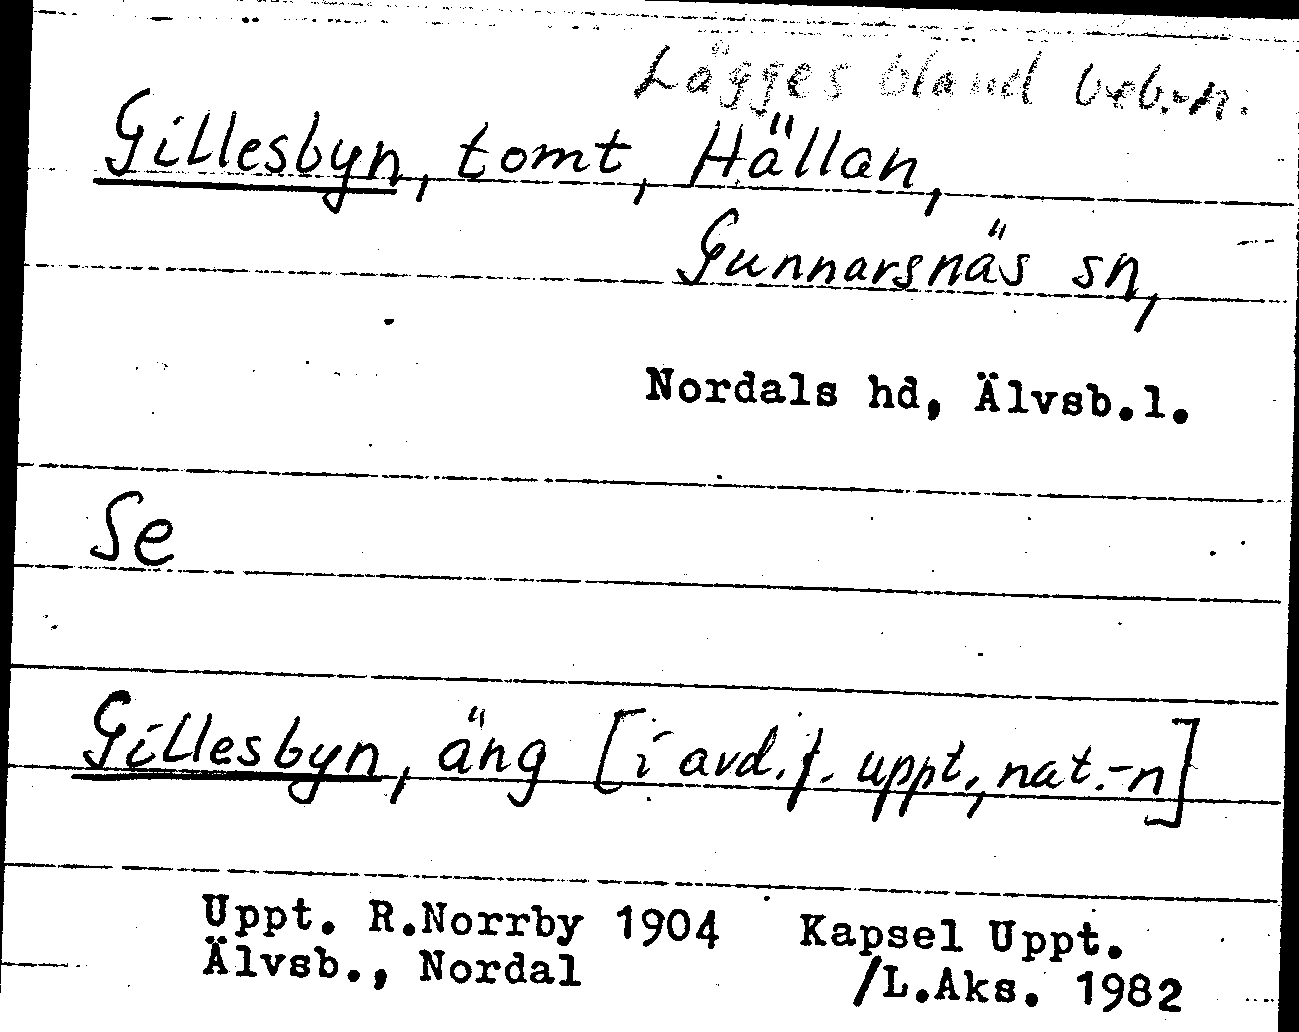 Lägges bland beb.-n.
Gillesbyn, tomt, Hällan,
Gunnarsnäs sn,
Nordals hd, Älvsb.l.
Se
Gillesbyn, äng [i avd. f. uppt., nat.-n]
Uppt. R.Norrby 1904 Kapsel Uppt.
Älvsb., Nordal /L.Aks. 1982